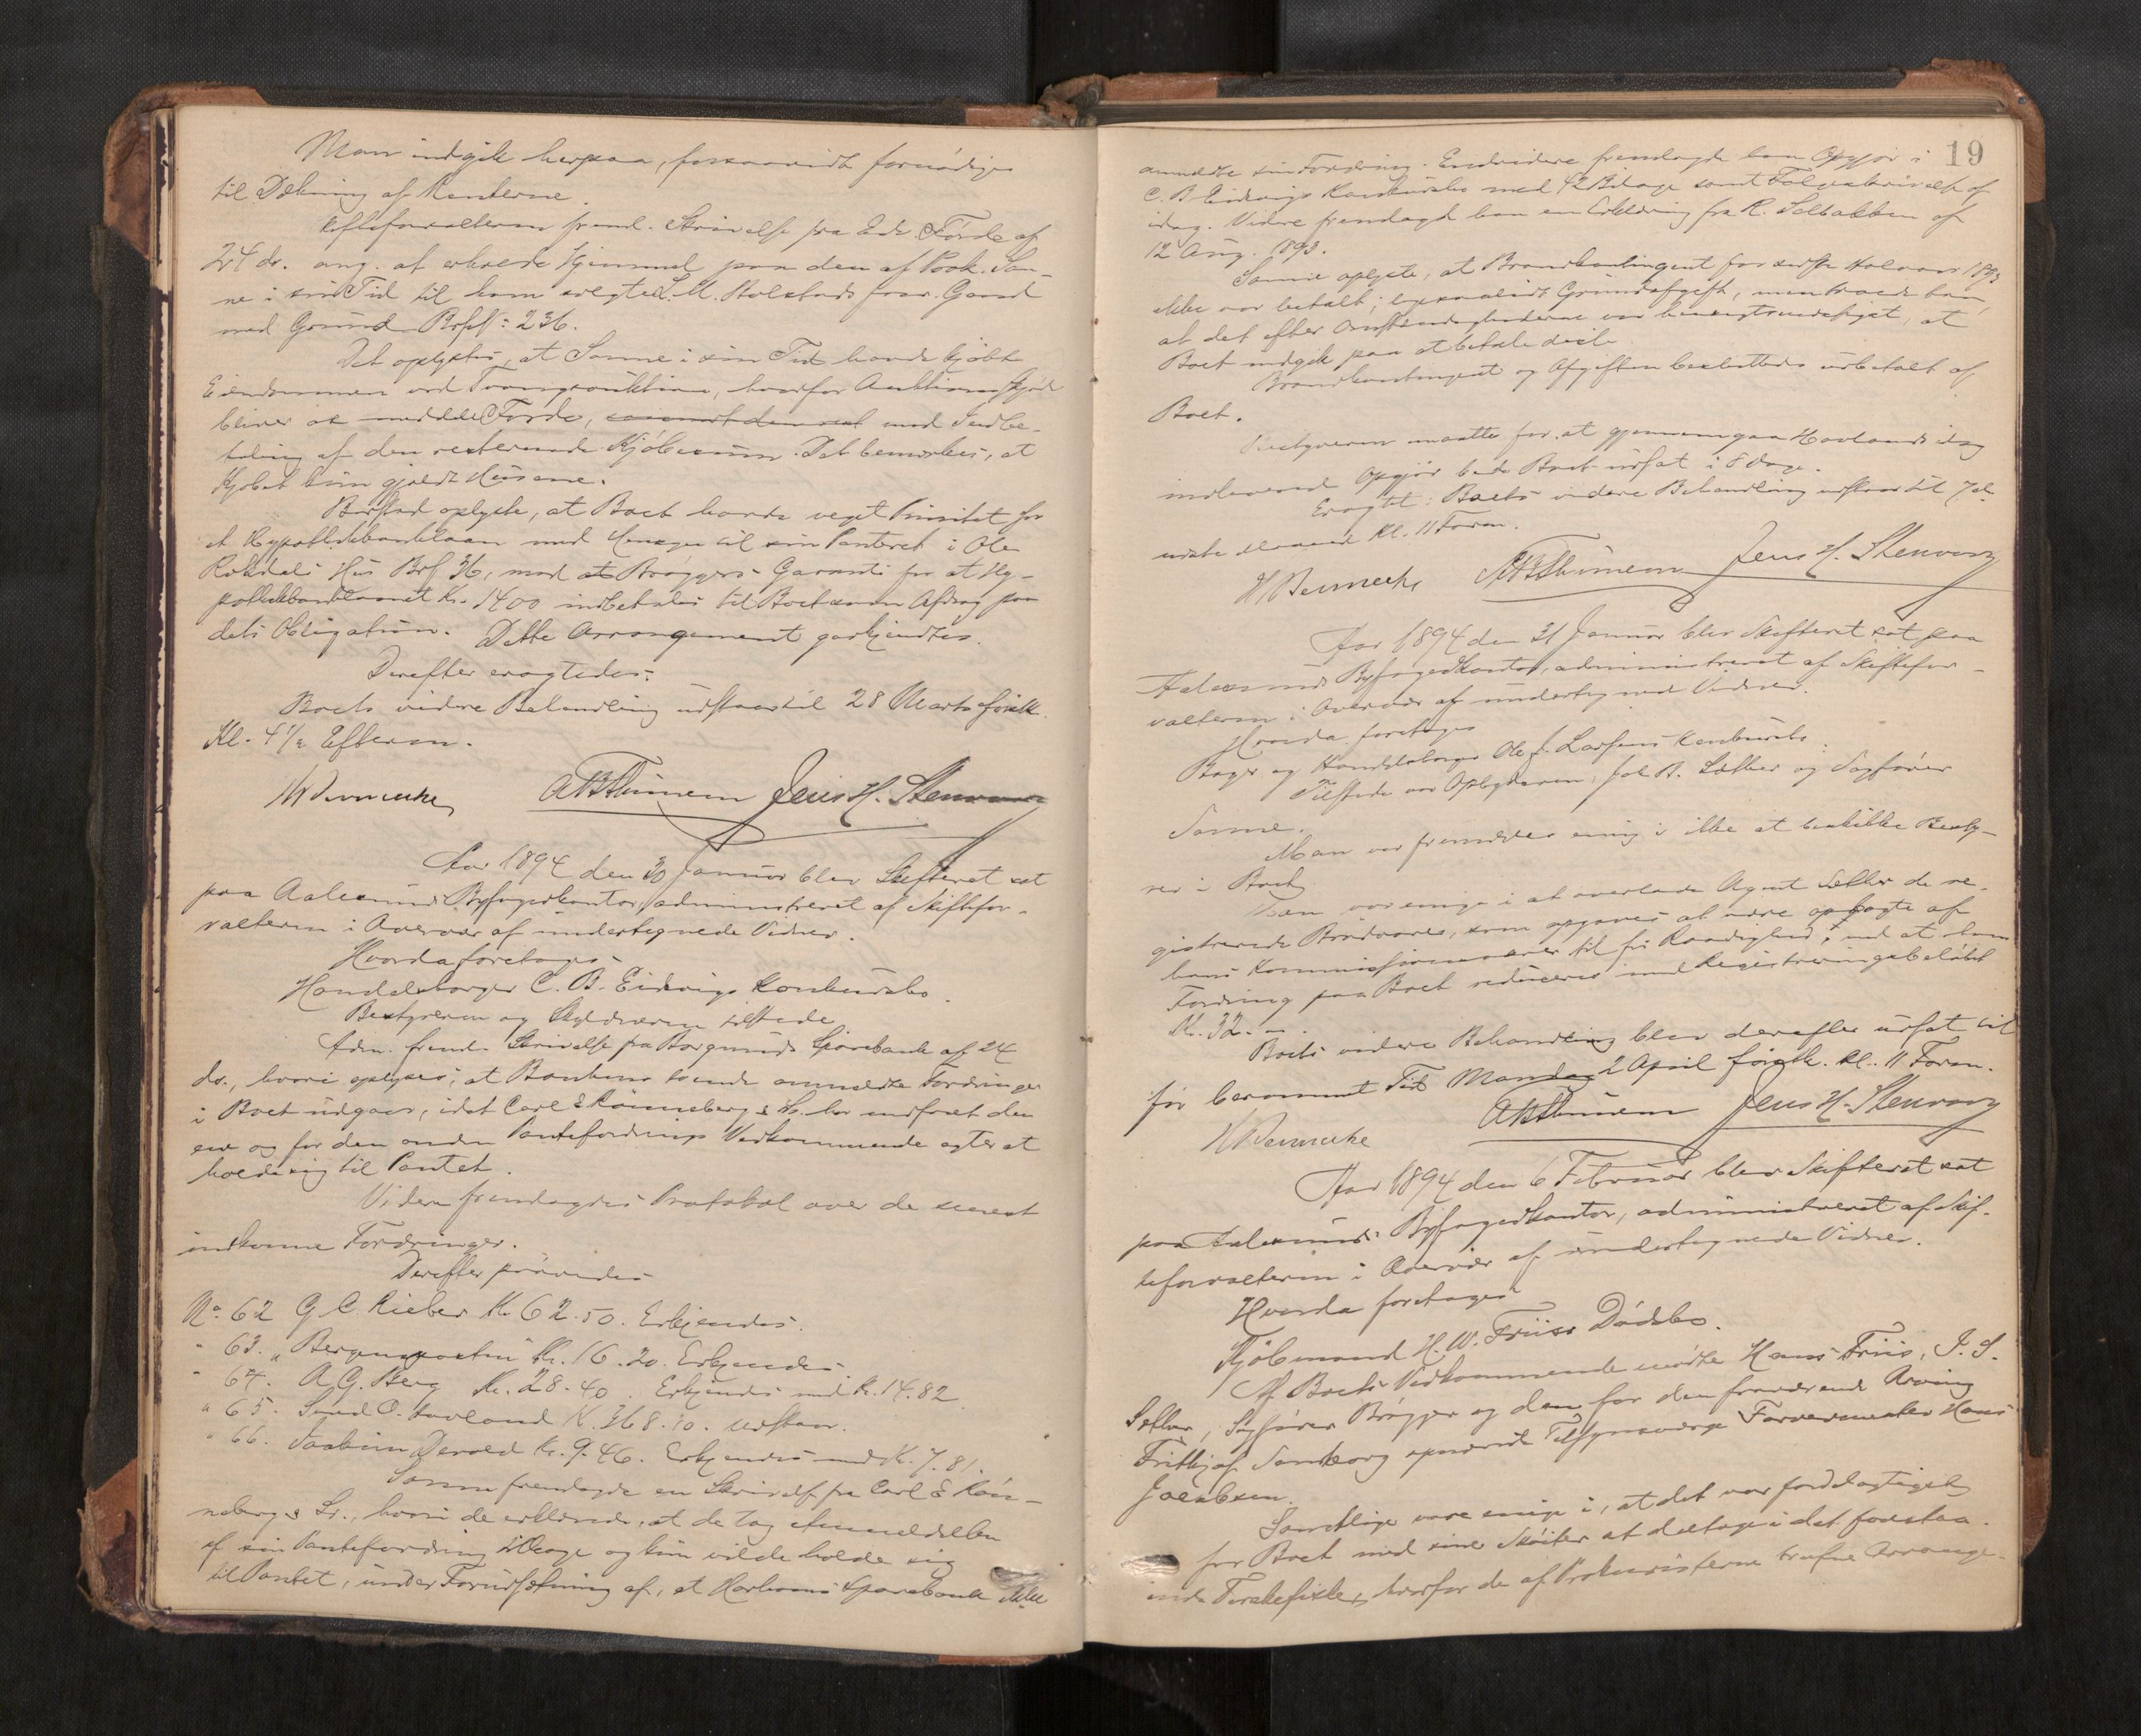 Man indgik herpaa, forsaavidt fornødiges
til Dækning af Renterne.
Skifteforvalteren freml. Skrivelse fra Edv. Førde af
24 ds. ang. at erholde Hjemmel paa den af Sag. San-
ne i sin Tid til ham solgte L. M. Rolstads forr. Gaard
med Grund Brf. No: 236.
Det oplystes, at Sanne i sin Tid havde kjøbt
Eiendommen ved Tvangsauktion, hvorfor Auktionsskjøde
bliver at meddele Førde, mod Indbe-
taling af den resterende Kjøbesum. Det bemerkes, at
Kjøbet kun gjældt Husene.
oplyste, at Boet havde veget Prioritet for
et Hypothekbanklaan med Hensyn til sin Panteret i Ole
Rokdals Hus Brf 36, mod at Brøggers Garanti for at Hy-
pothekbanklaanet Kr. 1400 indbetales til Boet som Afdrag paa
dets Obligation. Dette Arrangement godkjendtes.
Derefter eragtedes:
Boets videre Behandling udstaar til 28 Marts førstk.
Kl. 4 1/2 Efterm.
H Bennecke ABThunem Jens H. Stenvaag
Aar 1894 den 30 Januar blev Skifteret sat
paa Aalesunds Byfogedkontor, administreret af Skiftefor-
valteren i Overvær af undertegnede Vidner.
Hvorda foretoges
Handelsborger C. B. Eidsvigs Konkursbo.
Bestyreren og Skyldneren tilstede
Adm. freml. Skrivelse fra Borgunds Sparebank af 24
ds., hvori oplyses, at Bankens tvende anmeldte Fordringer
i Boet udgaar, idet Carl E Rønneberg & Sr. har indfriet den
ene og for den anden Pantefordrings Vedkommende agter at
holde sig til Pantet.
Videre fremlagdes Protokol over de senest
indkomne Fordringer.
Derefter prøvedes
No 62 G. C. Rieber Kr. 62.50. Erkjendes.
" 63. "Bergensposten" Kr. 16.20. Erkjendes
" 64. A. G. Berg Kr. 28.40. Erkjendes med Kr. 14.82
" 65. Send O. Hovland Kr. 368.10. udstaar.
" 66. Joakim Devold Kr. 9.46. Erkjendes med Kr. 7.81.
Sanne fremlagde en Skrivelse fra Carl E Røn-
neberg & Sr., hvori de erklærede, at de tog Anmeldelsen
af sin Pantefordring tilbage og kun vilde holde sig
til Pantet, under Forudsætning af, at Harhams Sparebank ikke
19
anmeldte sin Fordring. Endvidere fremlagde han Opgjør i
C. B. Eidsvigs Konkursbo med 42 Bilage samt Følgeskrivelse af
idag. Videre fremlagde han en Erklæring fra R. Solbakken af
12 Aug. 1893.
Sanne oplyste, at Brandkontingent for sidste Halvaar 1893
ikke var betalt; ligesaalidt Grundafgift, men troede han,
at det efter Omstændighederne var hensigtsmæssigst, at
Boet indgik paa at betale disse
Brandkontingent og Afgiften besluttedes udbetalt af
Boet.
Bestyreren maatte for at gjennemgaa Hovlands idag
indleverede Opgjør bede Boet udsat i 8 Dage.
Eragtet: Boets videre Behandling udstaar til 7de
næste Maaned Kl. 11 Form.
H Bennecke ABThunem Jens H. Stenvaag
Aar 1894 den 31 Januar blev Skifteret sat paa
Aalesunds Byfogedkontor, administreret af Skiftefor-
valteren i Overvær af undertegnede Vidner.
Hvorda foretoges
Bager og Handelsborger Ole J. Larsens Konkursbo.
Tilstede var Opbyderen, Joh B. Sætter og Sagfører
Sanne.
Man var fremdeles enig i ikke at beskikke Besty-
rer i Boet
Man var enige i at overlade Agent Sætter de re-
gistrerede Brødvarer, som opgaves at være opbragte af
hans Kommissionsvarer til fri Raadighed, ved at hans
Fordring paa Boet reduceres med Registreringsbeløbet
Kr. 32. –.
Boets videre Behandling blev derefter udsat til
før berammet Tid Mandag 2 April førstk. kl. 11 Form.
H Bennecke ABThunem Jens H. Stenvaag
Aar 1894 den 6 Februar blev Skifteret sat
paa Aalesunds Byfogedkontor, administreret af Skif-
teforvalteren i Overvær af undertegnede Vidner.
Hvorda foretoges
Kjøbmand H. W. Friis's Dødsbo.
Af Boets Vedkommende mødte Hans Friis, P. S.
Sætter, Sagfører Brøgger og den for den fraværende Arving
Frithjof Sandborg opnævnte Tilsynsværge Farvermester Hans
Jacobsen.
Samtlige vare enige i, at det var fordelagtigst
for Boet med sine Skøiter at deltage i det forestaa-
ende Torskefiske, hvorfor de af Prokuristerne trufne Arrange-